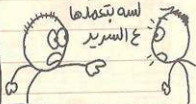 لسه بتعملها
ع السرير